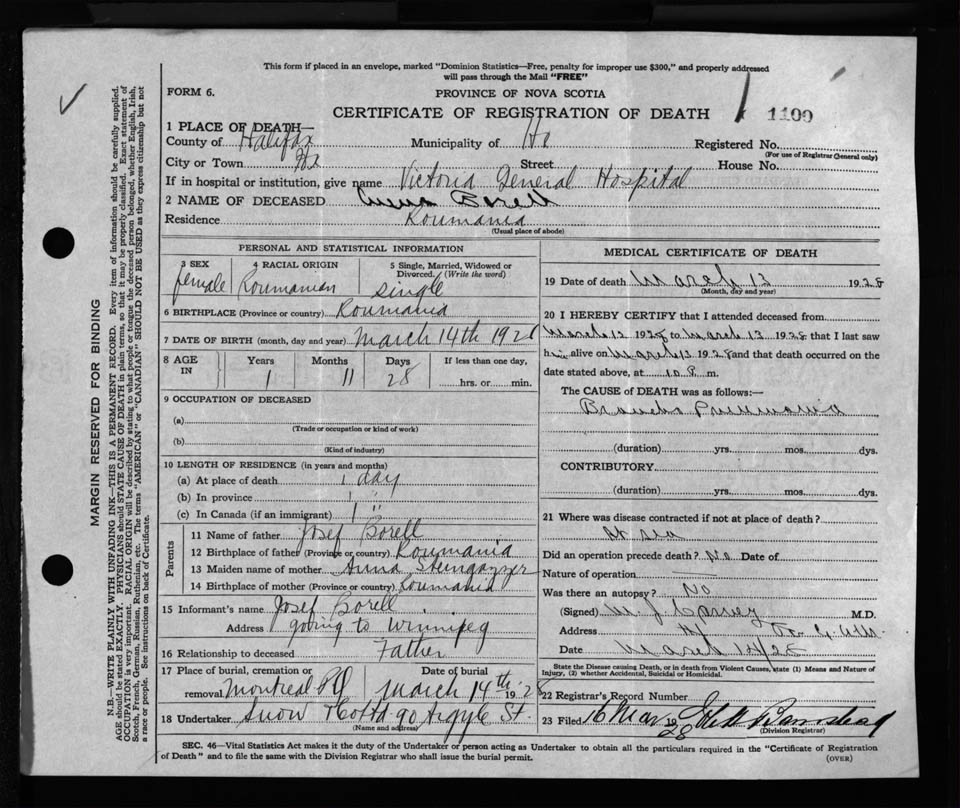 This form if placed in an envelope, marked "Dominion Statistics—Free, penalty for improper use $300," and properly addressed
will pass through the Mail "FREE"
FORM 6.
PROVINCE OF NOVA SCOTIA
CERTIFICATE OF REGISTRATION OF DEATH
1100
1 PLACE OF DEATH—
County of Halifax Municipality of Hx Registered No.
(For use of Registrar General only)
City or Town Hx Street House No.
If in hospital or institution, give name Victoria General Hospital
2 NAME OF DECEASED Anna Borell
Residence Roumania
(Usual place of abode)
PERSONAL AND STATISTICAL INFORMATION
3 SEX 4 RACIAL ORIGIN 5 Single, Married, Widowed or Divorced. (Write the word)
female Roumanian single
6 BIRTHPLACE (Province or country) Roumania
7 DATE OF BIRTH (month, day and year) March 14th
8 AGE IN Years Months Days If less than one day,
1 11 28 hrs. or min.
9 OCCUPATION OF DECEASED
(a)
(Trade or occupation or kind of work)
(b)
(Kind of industry)
10 LENGTH OF RESIDENCE (in years and months)
(a) At place of death 1 day
(b) In province 1 "
(c) In Canada (if an immigrant) 1 "
Parents
11 Name of father Josef Borell
12 Birthplace of father (Province or country) Roumania
13 Maiden name of mother Anna
14 Birthplace of mother (Province or country) Roumania
15 Informant's name Josef Borell
Address going to Winnipeg
16 Relationship to deceased Father
17 Place of burial, cremation or Date of burial
removal Montreal PQ March 14th 1928
18 Undertaker Snow & Co Ltd 90 Argyle St.
(Name and address)
MEDICAL CERTIFICATE OF DEATH
19 Date of death March 13 1928
(Month, day and year)
20 I HEREBY CERTIFY that I attended deceased from
March 12 1928 to March 13 1928 that I last saw
h alive on March 13 1928 and that death occurred on the
date stated above, at 10 P m.
The CAUSE of DEATH was as follows:—
Broncho Pneumonia
(duration) yrs. mos. dys.
CONTRIBUTORY
(duration) yrs. mos. dys.
21 Where was disease contracted if not at place of death?
At sea
Did an operation precede death? No Date of
Nature of operation
Was there an autopsy? No
(Signed) M. J. M.D.
Address Hx
Date March 14/28
State the Disease causing Death, or in death from Violent Causes, state (1) Means and Nature of
Injury, (2) whether Accidental, Suicidal or Homicidal.
22 Registrar's Record Number
23 Filed 16 Mar 1928
(Division Registrar)
SEC. 46—Vital Statistics Act makes it the duty of the Undertaker or person acting as Undertaker to obtain all the particulars required in the "Certificate of Registration
of Death" and to file the same with the Division Registrar who shall issue the burial permit.
(OVER)
MARGIN RESERVED FOR BINDING
N.B.—WRITE PLAINLY WITH UNFADING INK—THIS IS A PERMANENT RECORD. Every item of information should be carefully supplied.
AGE should be stated EXACTLY. PHYSICIANS should STATE CAUSE OF DEATH in plain terms, so that it may be properly classified. Exact statement of
OCCUPATION is very important. RACIAL ORIGIN will be described by stating to what people or tongue the deceased person belonged, whether English, Irish,
Scotch, French, German, Russian, Ruthenian, etc. The terms "AMERICAN" or "CANADIAN" SHOULD NOT BE USED as they express citizenship but not
a race or people. See instructions on back of Certificate.